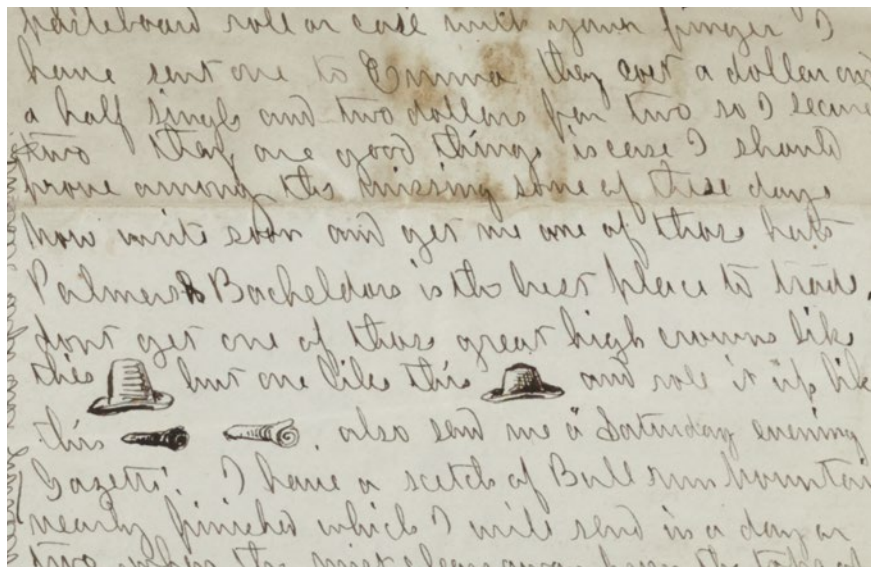 pasteboard role or case with your finger I
have sent one to Emma they cost a dollar and
a half single and two dollars for two so I secure
two they are good things is case I should
prove among the missing some of these days
now write soon and get me one of those hats
Palmer & Bachelders' is the best place to trade.
dont get one of those great high crowns like
this but one like this and role it up like
this also send me a Saturday evening
Gazette. I have a scetch of Bull run Mountain
nearly finished which I will send in a day or
two when the mist clears away from the tops of